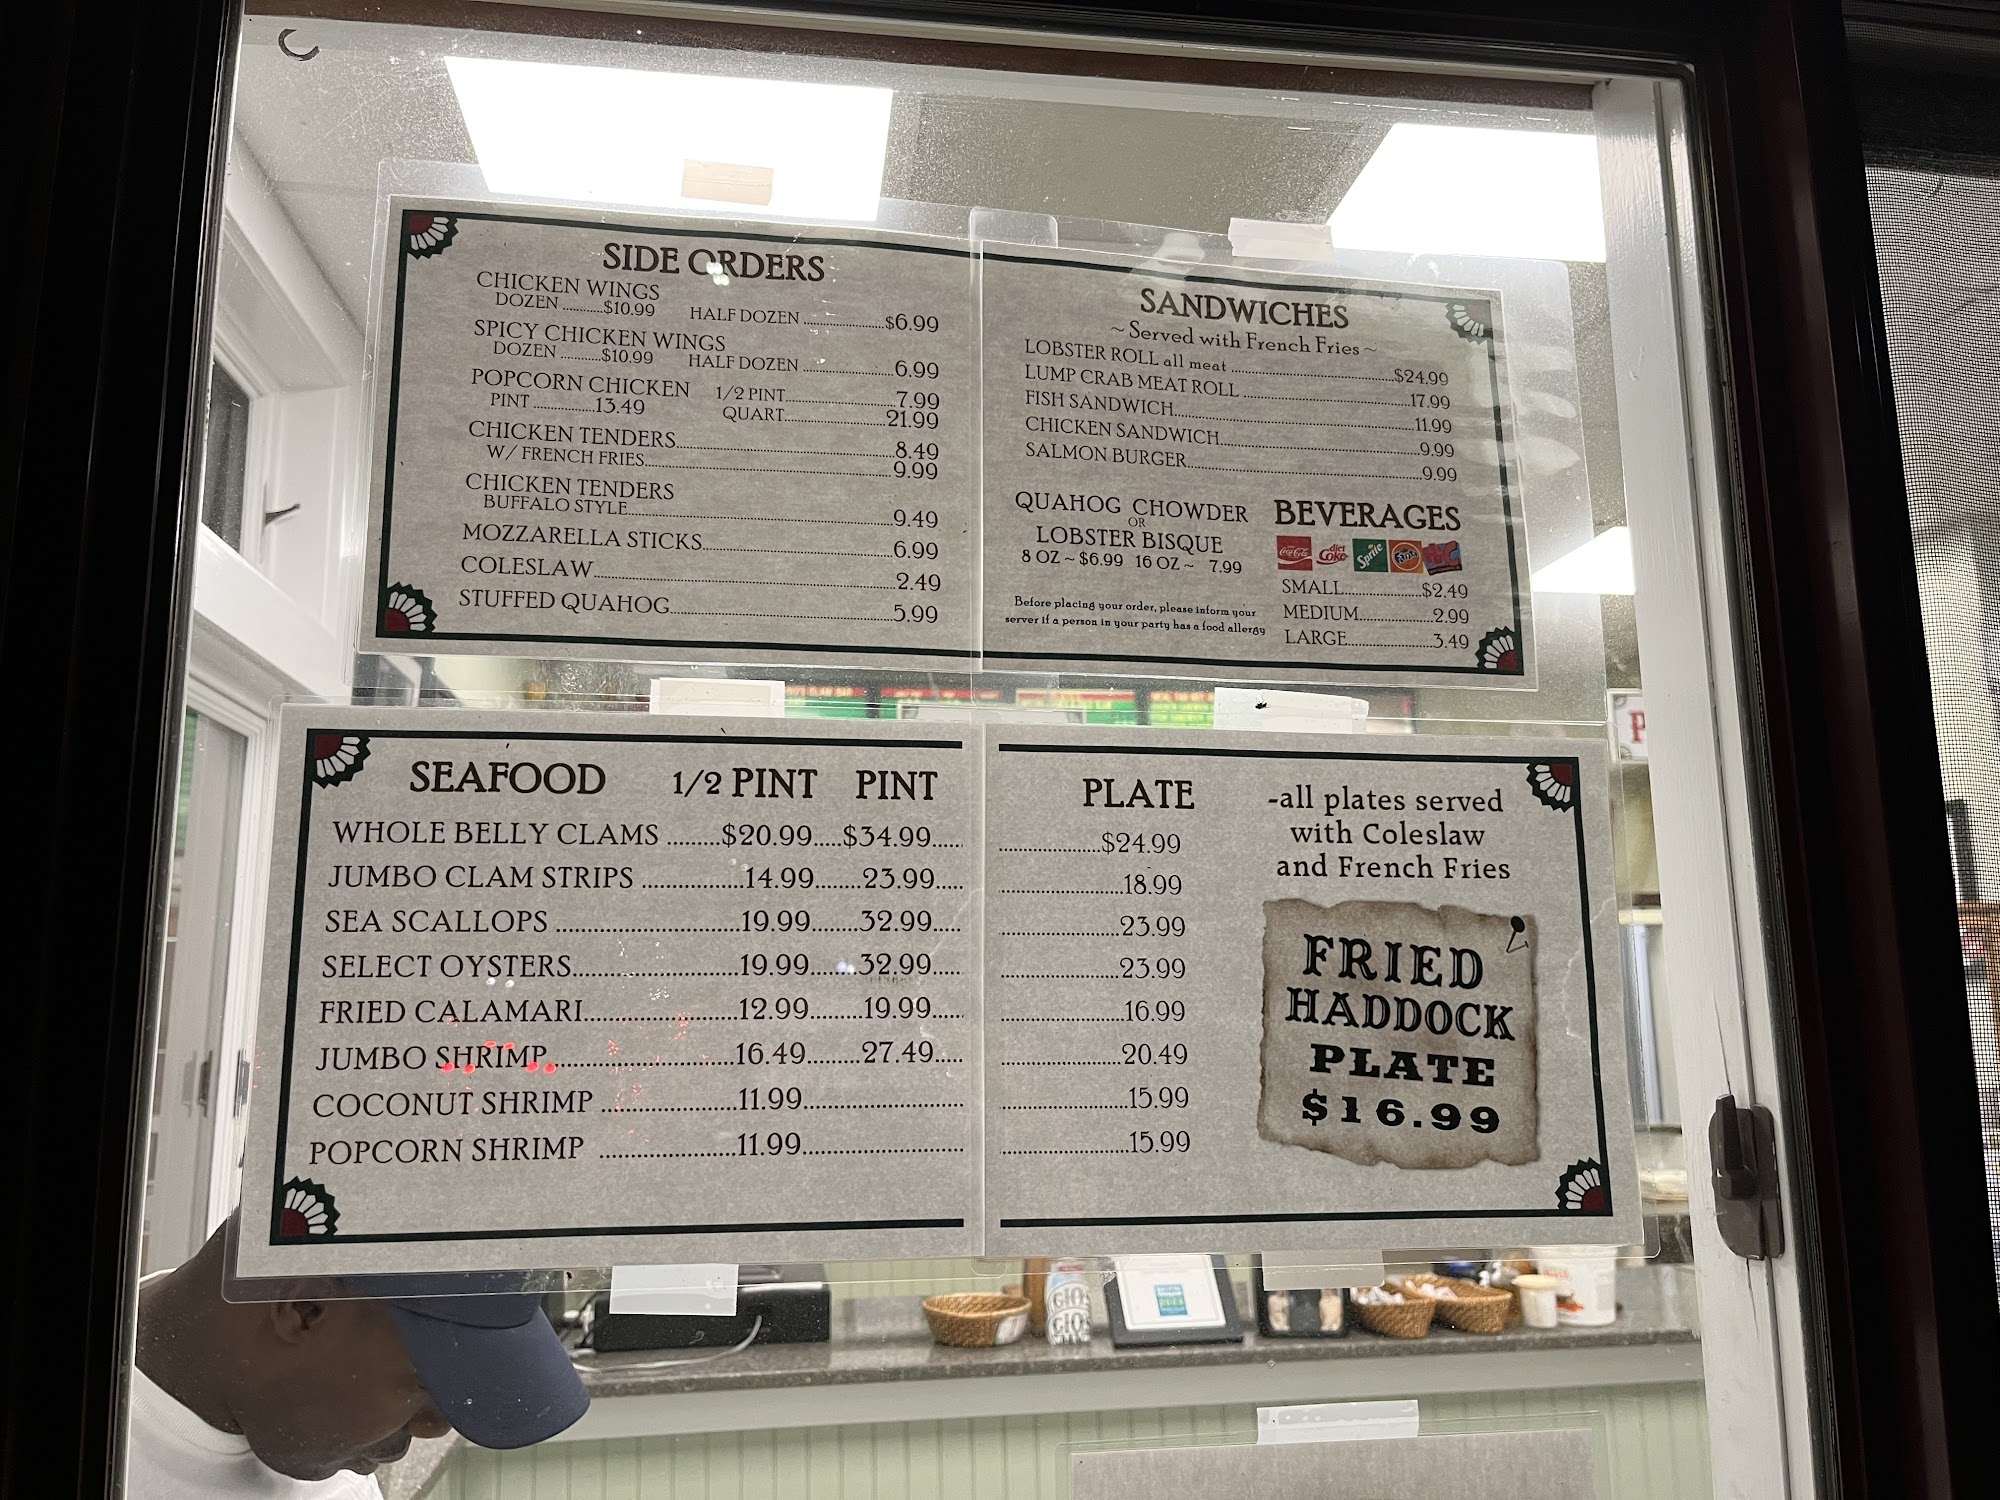 SIDE ORDERS
CHICKEN WINGS
DOZEN ...........$10.99 HALF DOZEN ........................$6.99
SPICY CHICKEN WINGS
DOZEN ...........$10.99 HALF DOZEN ........................6.99
POPCORN CHICKEN 1/2 PINT........................7.99
PINT .................13.49 QUART........................21.99
CHICKEN TENDERS........................8.49
W/ FRENCH FRIES........................9.99
CHICKEN TENDERS
BUFFALO STYLE........................9.49
MOZZARELLA STICKS........................6.99
COLESLAW........................2.49
STUFFED QUAHOG........................5.99
SANDWICHES
~ Served with French Fries ~
LOBSTER ROLL all meat ........................$24.99
LUMP CRAB MEAT ROLL ........................17.99
FISH SANDWICH........................11.99
CHICKEN SANDWICH........................9.99
SALMON BURGER........................9.99
QUAHOG CHOWDER
OR
LOBSTER BISQUE
8 OZ ~ $6.99 16 OZ ~ 7.99
Before placing your order, please inform your
server if a person in your party has a food allergy
BEVERAGES
Coca-Cola diet Coke Sprite Fanta
SMALL..................$2.49
MEDIUM..................2.99
LARGE..................3.49
SEAFOOD 1/2 PINT PINT PLATE
WHOLE BELLY CLAMS .........$20.99.....$34.99..... ...............$24.99
JUMBO CLAM STRIPS ...............14.99........23.99..... ...............18.99
SEA SCALLOPS ...............19.99........32.99..... ...............23.99
SELECT OYSTERS...............19.99.......32.99..... ...............23.99
FRIED CALAMARI...............12.99.........19.99..... ...............16.99
JUMBO SHRIMP...............16.49.........27.49..... ...............20.49
COCONUT SHRIMP ...............11.99............... ...............15.99
POPCORN SHRIMP ...............11.99............... ...............15.99
-all plates served
with Coleslaw
and French Fries
FRIED
HADDOCK
PLATE
$16.99